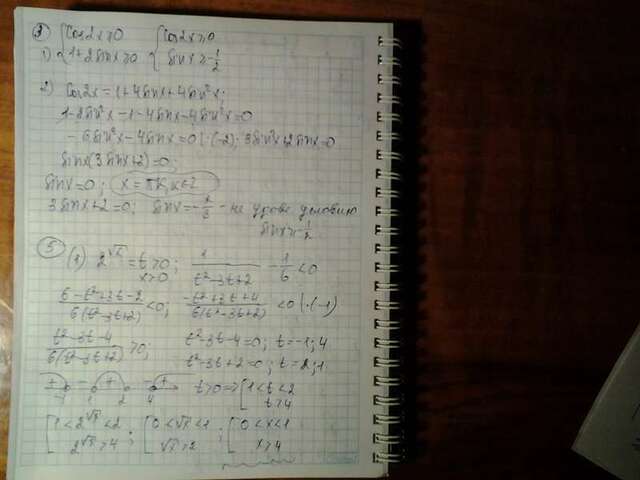 ③ { cos2x ≥ 0 { cos2x ≥ 0
1) { 1+2sinx ≥ 0 { sinx ≥ -1/2
2) cos2x = 1+4sinx+4sin²x;
1-2sin²x-1-4sinx-4sin²x=0
-6sin²x-4sinx=0 |:(-2); 3sin²x+2sinx=0
sinx(3sinx+2)=0;
sinx=0; x=πk, k∈Z
3sinx+2=0; sinx=-2/3 - не удовл условию
sinx≥-1/2
⑤ (1) 2^√x = t > 0; x>0; 1/(t²-3t+2) - 1/6 < 0
(6-t²+3t-2)/(6(t²-3t+2)) < 0; (-t²+3t+4)/(6(t²-3t+2)) < 0 |·(-1)
(t²-3t-4)/(6(t²-3t+2)) > 0; t²-3t-4=0; t=-1; 4
t²-3t+2=0; t=2; 1
+ - + - + -1 1 2 4 t>0 => [ 1<t<2
t>4
[ 1<2^√x<2 ; [ 0<√x<1 ; [ 0<x<1
2^√x>4 √x>2 x>4